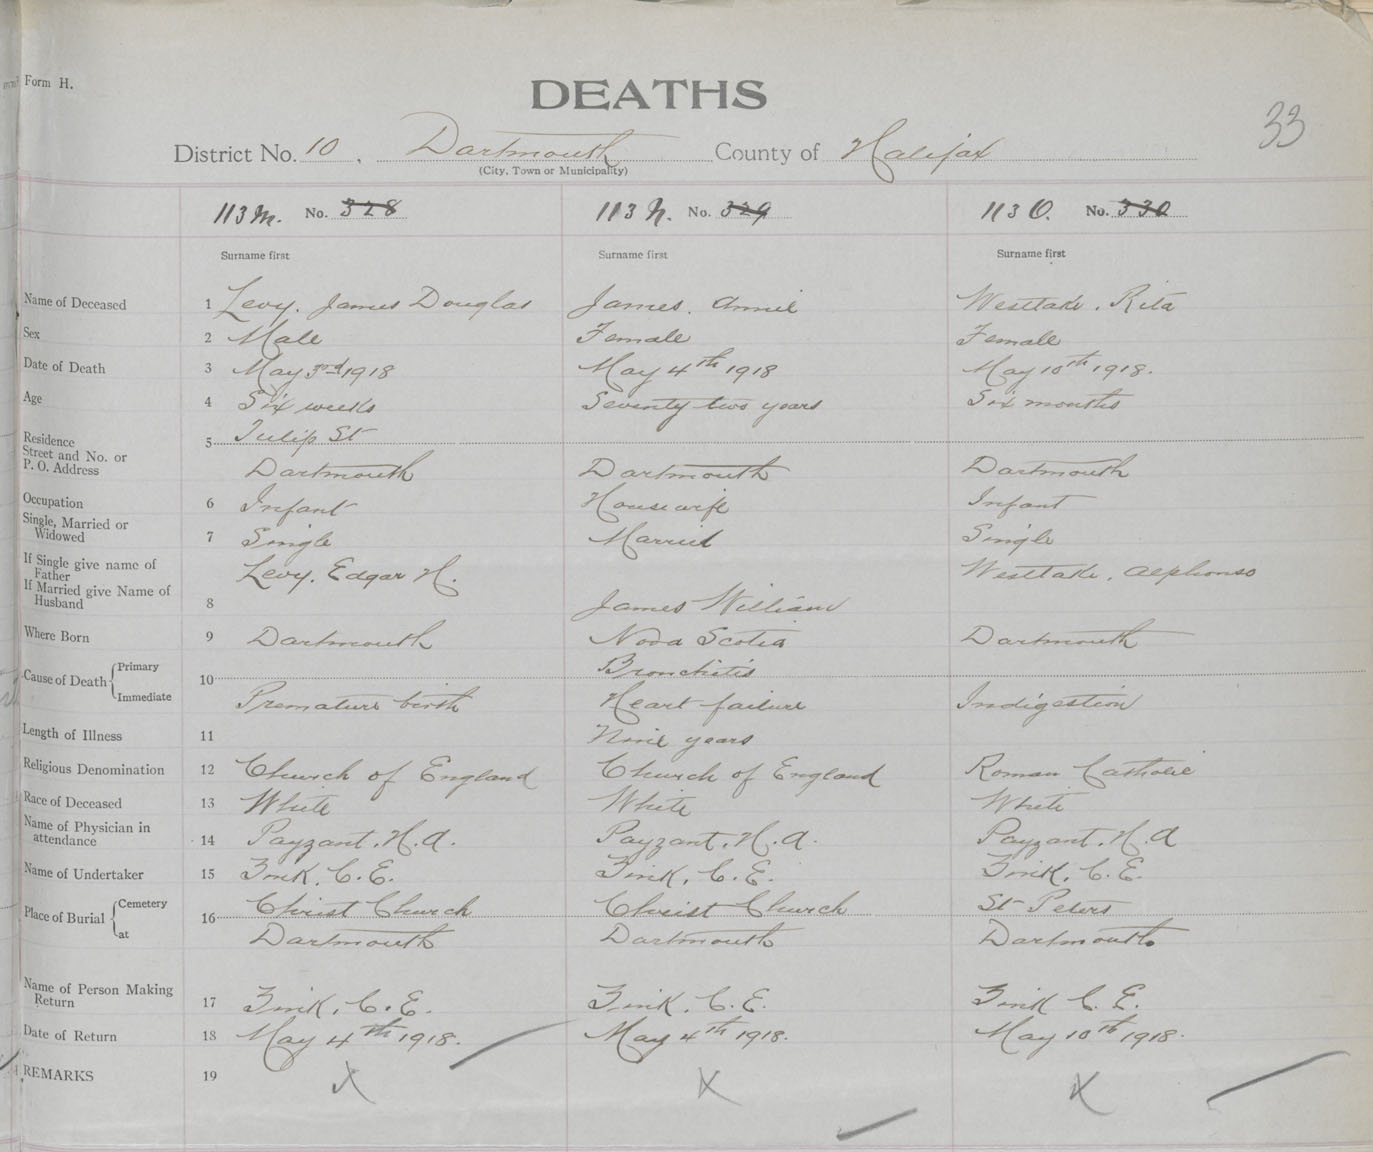 Form H.
DEATHS
33
District No. 10, Dartmouth County of Halifax
(City, Town or Municipality)
113 M. No. 328 113 N. No. 329 113 O. No. 330
Surname first Surname first Surname first
Name of Deceased 1 Levy, James Douglas James, Annie Westlake, Rita
Sex 2 Male Female Female
Date of Death 3 May 3rd 1918 May 4th 1918 May 10th 1918.
Age 4 Six weeks Seventy two years Six months
Residence 5 Tulip St
Street and No. or
P. O. Address Dartmouth Dartmouth Dartmouth
Occupation 6 Infant Housewife Infant
Single, Married or
Widowed 7 Single Married Single
If Single give name of
Father Levy, Edgar H. Westlake, Alphonso
If Married give Name of
Husband 8 James William
Where Born 9 Dartmouth Nova Scotia Dartmouth
Cause of Death Primary 10 Bronchitis
Immediate Premature birth Heart failure Indigestion
Length of Illness 11 Nine years
Religious Denomination 12 Church of England Church of England Roman Catholic
Race of Deceased 13 White White White
Name of Physician in
attendance 14 Payzant, H. A. Payzant, H. A. Payzant, H. A
Name of Undertaker 15 Zink, C. E. Zink, C. E. Zink, C. E.
Place of Burial Cemetery 16 Christ Church Christ Church St Peters
at Dartmouth Dartmouth Dartmouth
Name of Person Making
Return 17 Zink, C. E. Zink, C. E. Zink C. E.
Date of Return 18 May 4th 1918. May 4th 1918. May 10th 1918.
REMARKS 19 X X X